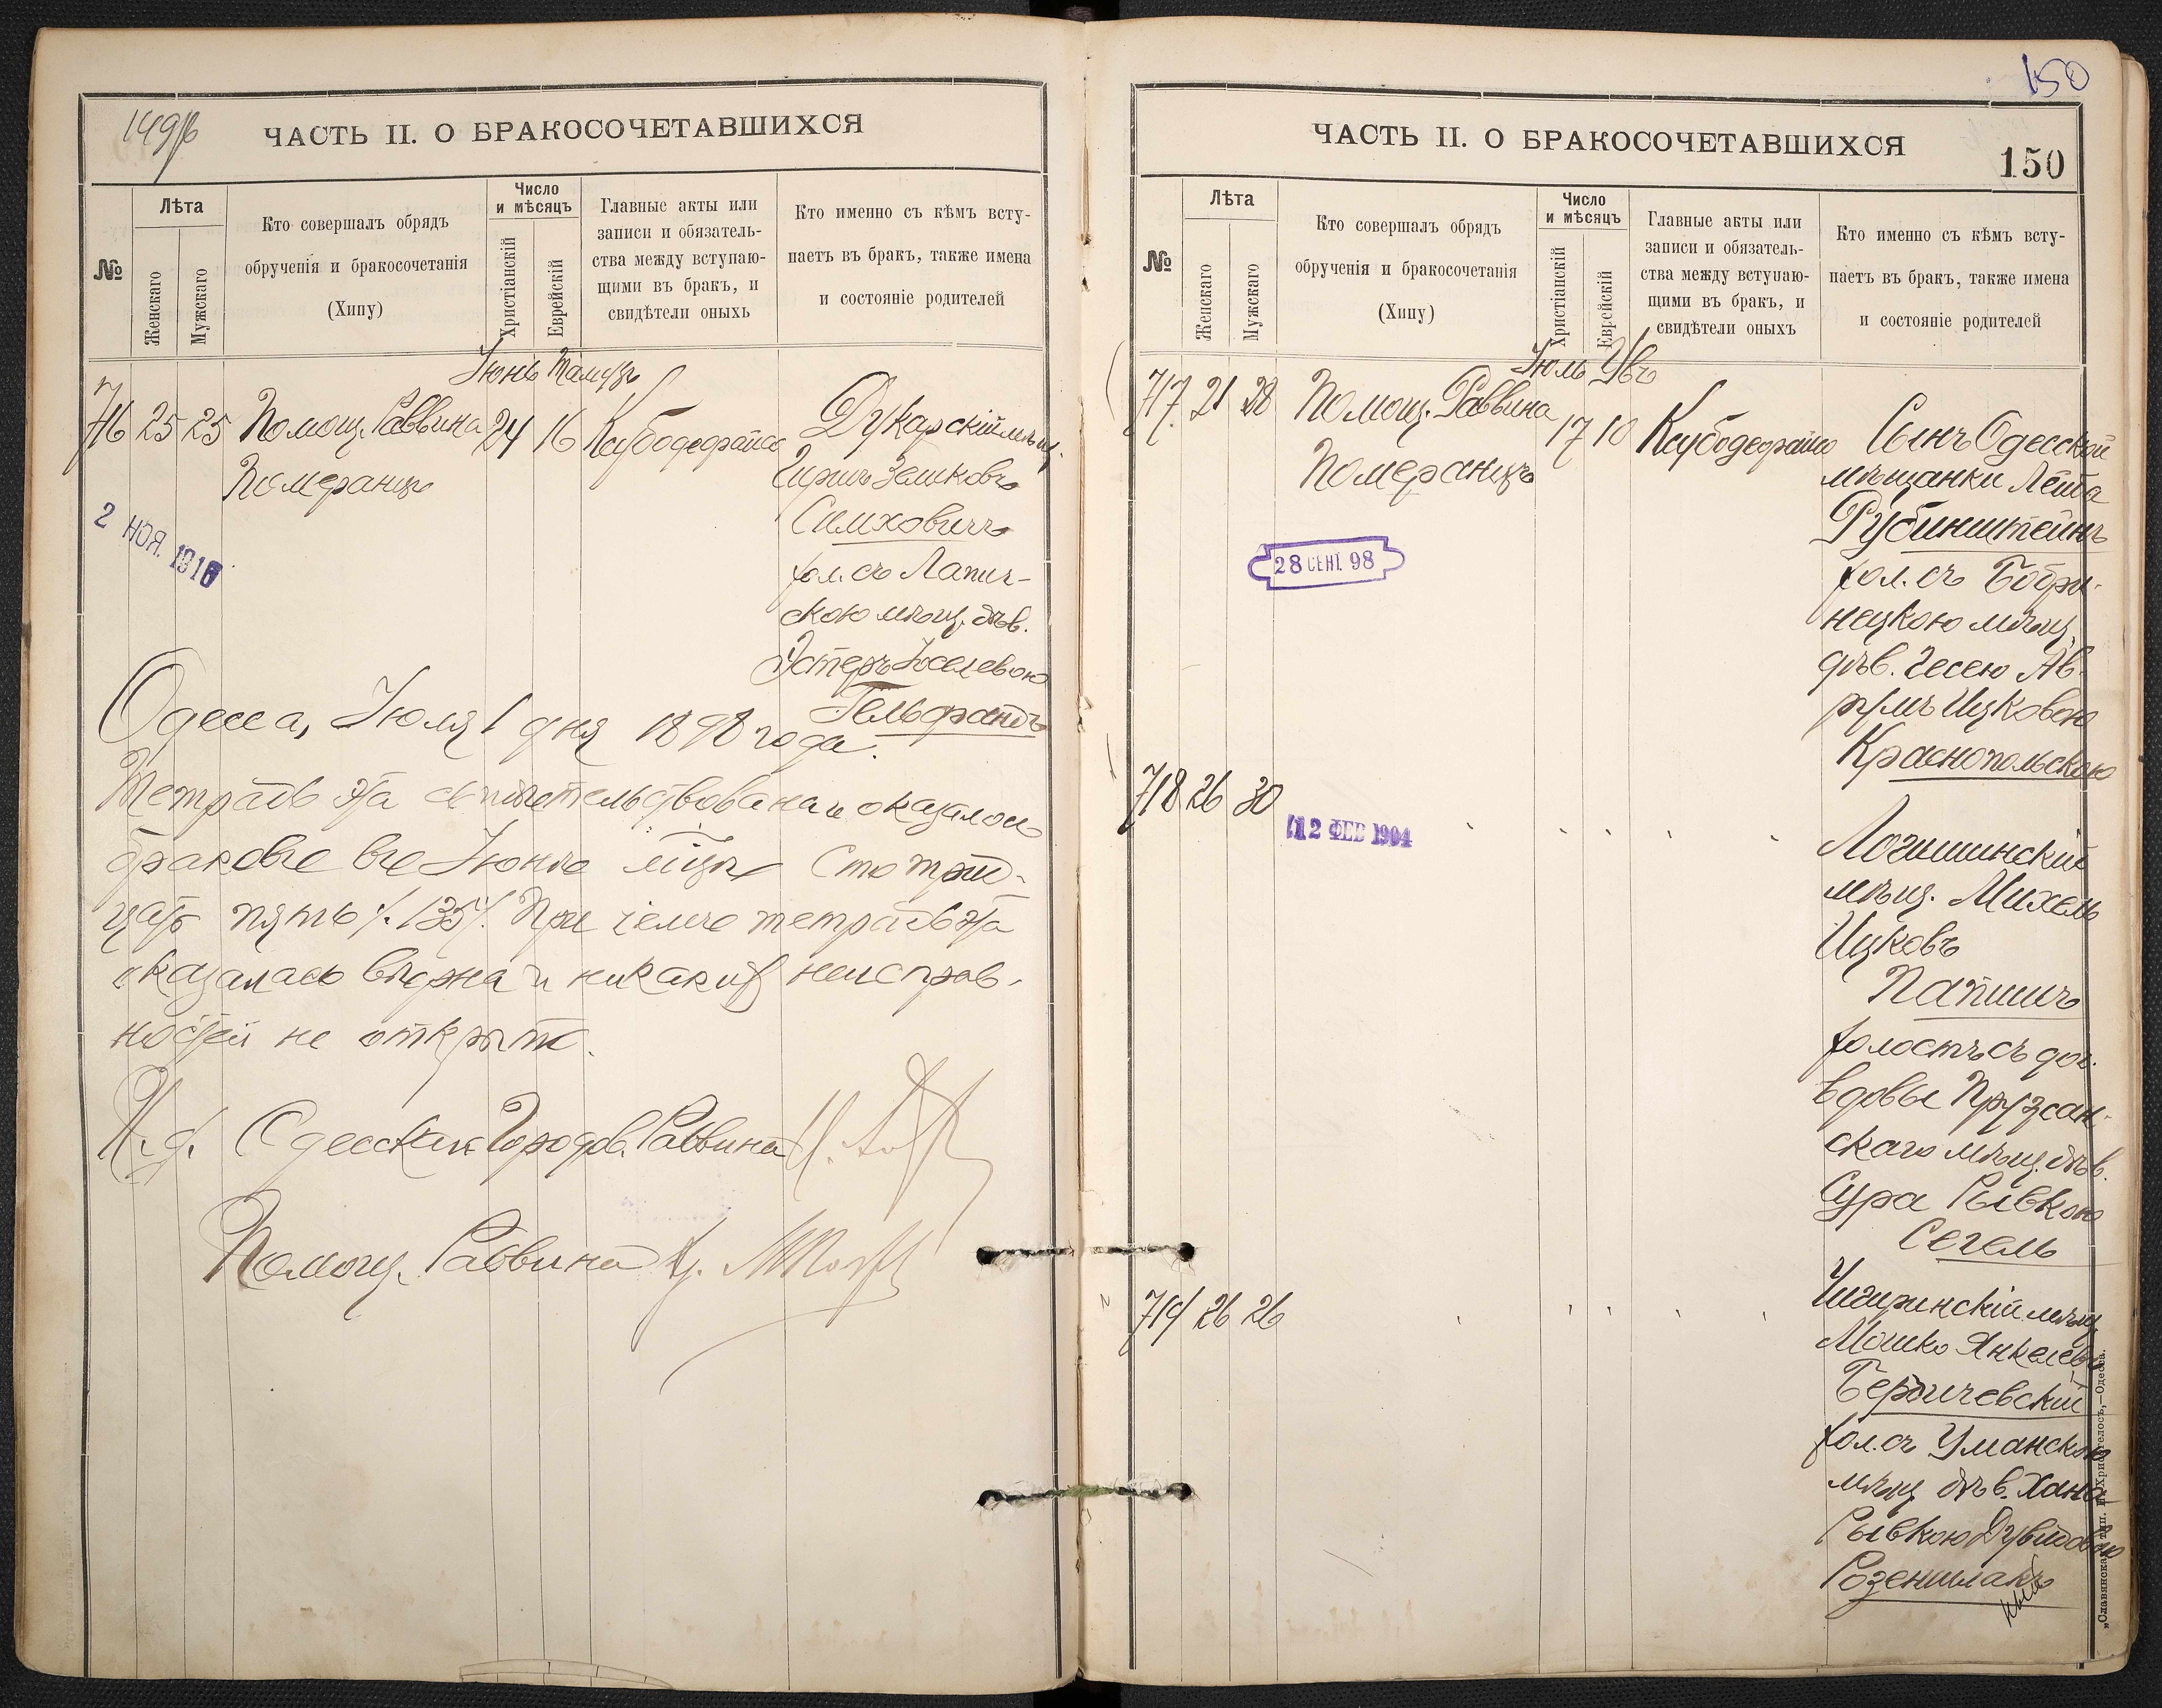 149об
ЧАСТЬ II. О БРАКОСОЧЕТАВШИХСЯ
№
Лѣта
Женскаго
Мужскаго
Кто совершалъ обрядъ
обрученія и бракосочетанія
(Хипу)
Число
и мѣсяцъ
Христіанскій
Еврейскій
Главные акты или
записи и обязатель-
ства между вступаю-
щими въ бракъ, и
свидѣтели оныхъ
Кто именно съ кѣмъ всту-
паетъ въ бракъ, также имена
и состояніе родителей
Іюнь Тамузъ
716 25 25 Помощ. Раввина 24 16 Ксубодефрайсо
Померанцъ
Дукарскій мѣщ.
Гиршъ Зеликовъ
Симховичъ
хол. съ Лапич-
скою мѣщ. дѣв.
Эстеръ Іоселевою
Гельфандъ
2 НОЯ. 1916
Одесса, Іюля 1 дня 1898 года.
Тетрадь эта свидѣтельствована и оказалось
браковъ въ Іюнѣ мѣцѣ Сто трид-
цать пять /.135/. При чемъ тетрадь эта
оказалась вѣрна и никакихъ неисправ-
ностей не открыто.
И. д. Одесскаго Городов. Раввина
Помощ. Раввина
150
ЧАСТЬ II. О БРАКОСОЧЕТАВШИХСЯ
150
№
Лѣта
Женскаго
Мужскаго
Кто совершалъ обрядъ
обрученія и бракосочетанія
(Хипу)
Число
и мѣсяцъ
Христіанскій
Еврейскій
Главные акты или
записи и обязатель-
ства между вступаю-
щими въ бракъ, и
свидѣтели оныхъ
Кто именно съ кѣмъ всту-
паетъ въ бракъ, также имена
и состояніе родителей
Іюль Увъ
717. 21 28 Помощ. Раввина 17 10 Ксубодефрайсо
Померанцъ
Сынъ Одесской
мѣщанки Лейба
Рубинштейнъ
хол. съ Бобри-
нецкою мѣщ.
дѣв. Гесею Ав-
румъ Ицковою
Краснопольскою
28 СЕНТ. 98
718 26 30
12 ФЕВ 1904
Логишинскій
мѣщ. Михель
Ицковъ
Папишъ
холостъ съ доч.
вдовы Пружан-
скаго мѣщ. дѣв.
Сура Рывкою
Сегаль
719 26 26
Чигиринскій мѣщ.
Мошко Янкелевъ
Бердичевскій
хол. съ Уманскою
мѣщ. дѣв. Хана
Рывкою Дувидовою
Розеншлакъ
„Славянская" тип. Н. Хрисогелосъ,—Одесса.